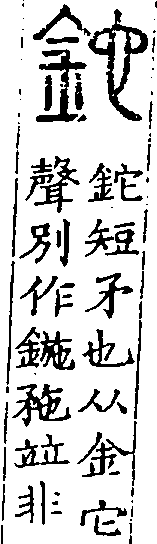 鉈
鉈短矛也从金它
聲別作鍦䂠竝非